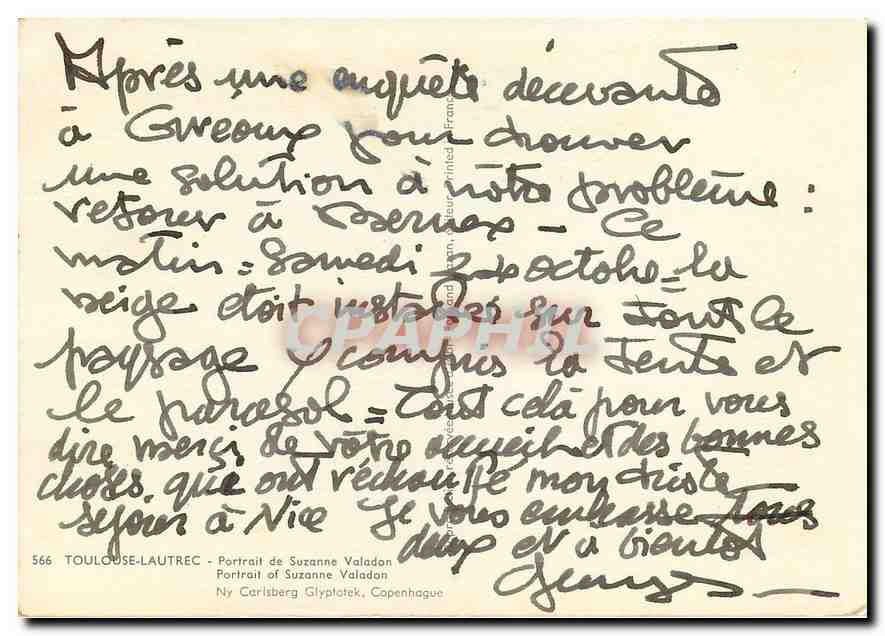 Après une enquête décevante
à Gréoux pour trouver
une solution à nôtre problème :
retour à Bernex - Ce
matin = Samedi octobre = la
neige était installée sur tout le
paysage y compris la tente et
le parasol = tout celà pour vous
dire merci de vôtre accueil et des bonnes
choses que ont réchauffé mon triste
sejour à Nice Je vous embrasse tous
deux et a bientot
Georges
566 TOULOUSE-LAUTREC - Portrait de Suzanne Valadon
Portrait of Suzanne Valadon
Ny Carlsberg Glyptotek, Copenhague
CPAPHIL